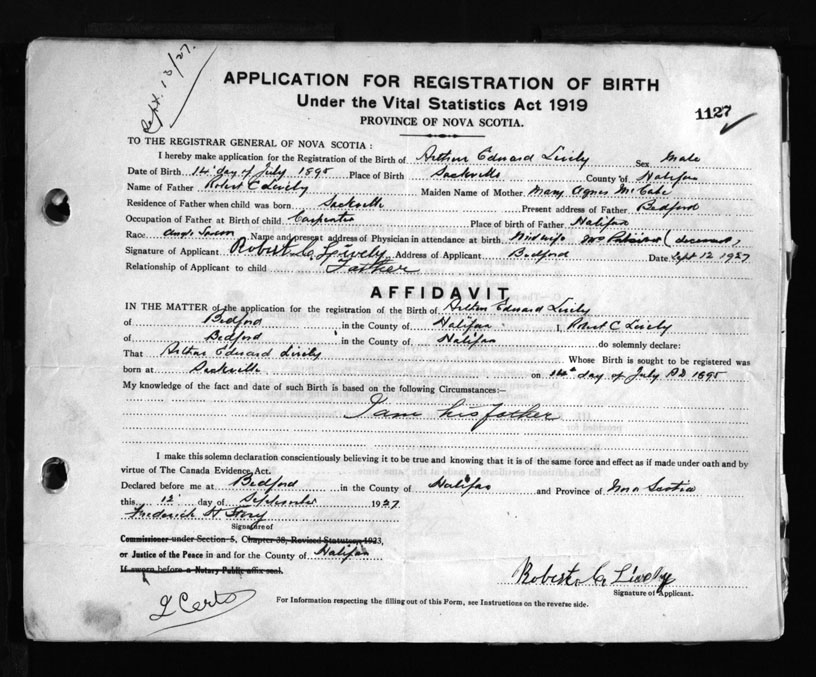 Sept. 13/27.
APPLICATION FOR REGISTRATION OF BIRTH
Under the Vital Statistics Act 1919
1127
PROVINCE OF NOVA SCOTIA.
TO THE REGISTRAR GENERAL OF NOVA SCOTIA :
I hereby make application for the Registration of the Birth of Arthur Edward Lively Sex Male
Date of Birth 14 day of July 1895 Place of Birth Sackville County of Halifax
Name of Father Robert C Lively Maiden Name of Mother Mary Agnes McCabe
Residence of Father when child was born Sackville Present address of Father Bedford
Occupation of Father at Birth of child Carpenter Place of birth of Father Halifax
Race Anglo Saxon Name and present address of Physician in attendance at birth Midwife Mrs (deceased)
Signature of Applicant Robert C. Lively Address of Applicant Bedford Date Sept 12 1927
Relationship of Applicant to child Father
AFFIDAVIT
IN THE MATTER of the application for the registration of the Birth of Arthur Edward Lively
of Bedford in the County of Halifax I, Robert C Lively
of Bedford in the County of Halifax do solemnly declare:
That Arthur Edward Lively Whose Birth is sought to be registered was
born at Sackville on 14th day of July AD 1895
My knowledge of the fact and date of such Birth is based on the following Circumstances:—
I am his father
I make this solemn declaration conscientiously believing it to be true and knowing that it is of the same force and effect as if made under oath and by
virtue of The Canada Evidence Act.
Declared before me at Bedford in the County of Halifax and Province of Nova Scotia
this 12 day of September 1927
Frederick H
Signature of
Commissioner under Section 5, Chapter 38, Revised Statutes 1923,
or Justice of the Peace in and for the County of Halifax
If sworn before a Notary Public affix seal.
Robert C Lively
Signature of Applicant.
2 Certs
For Information respecting the filling out of this Form, see Instructions on the reverse side.